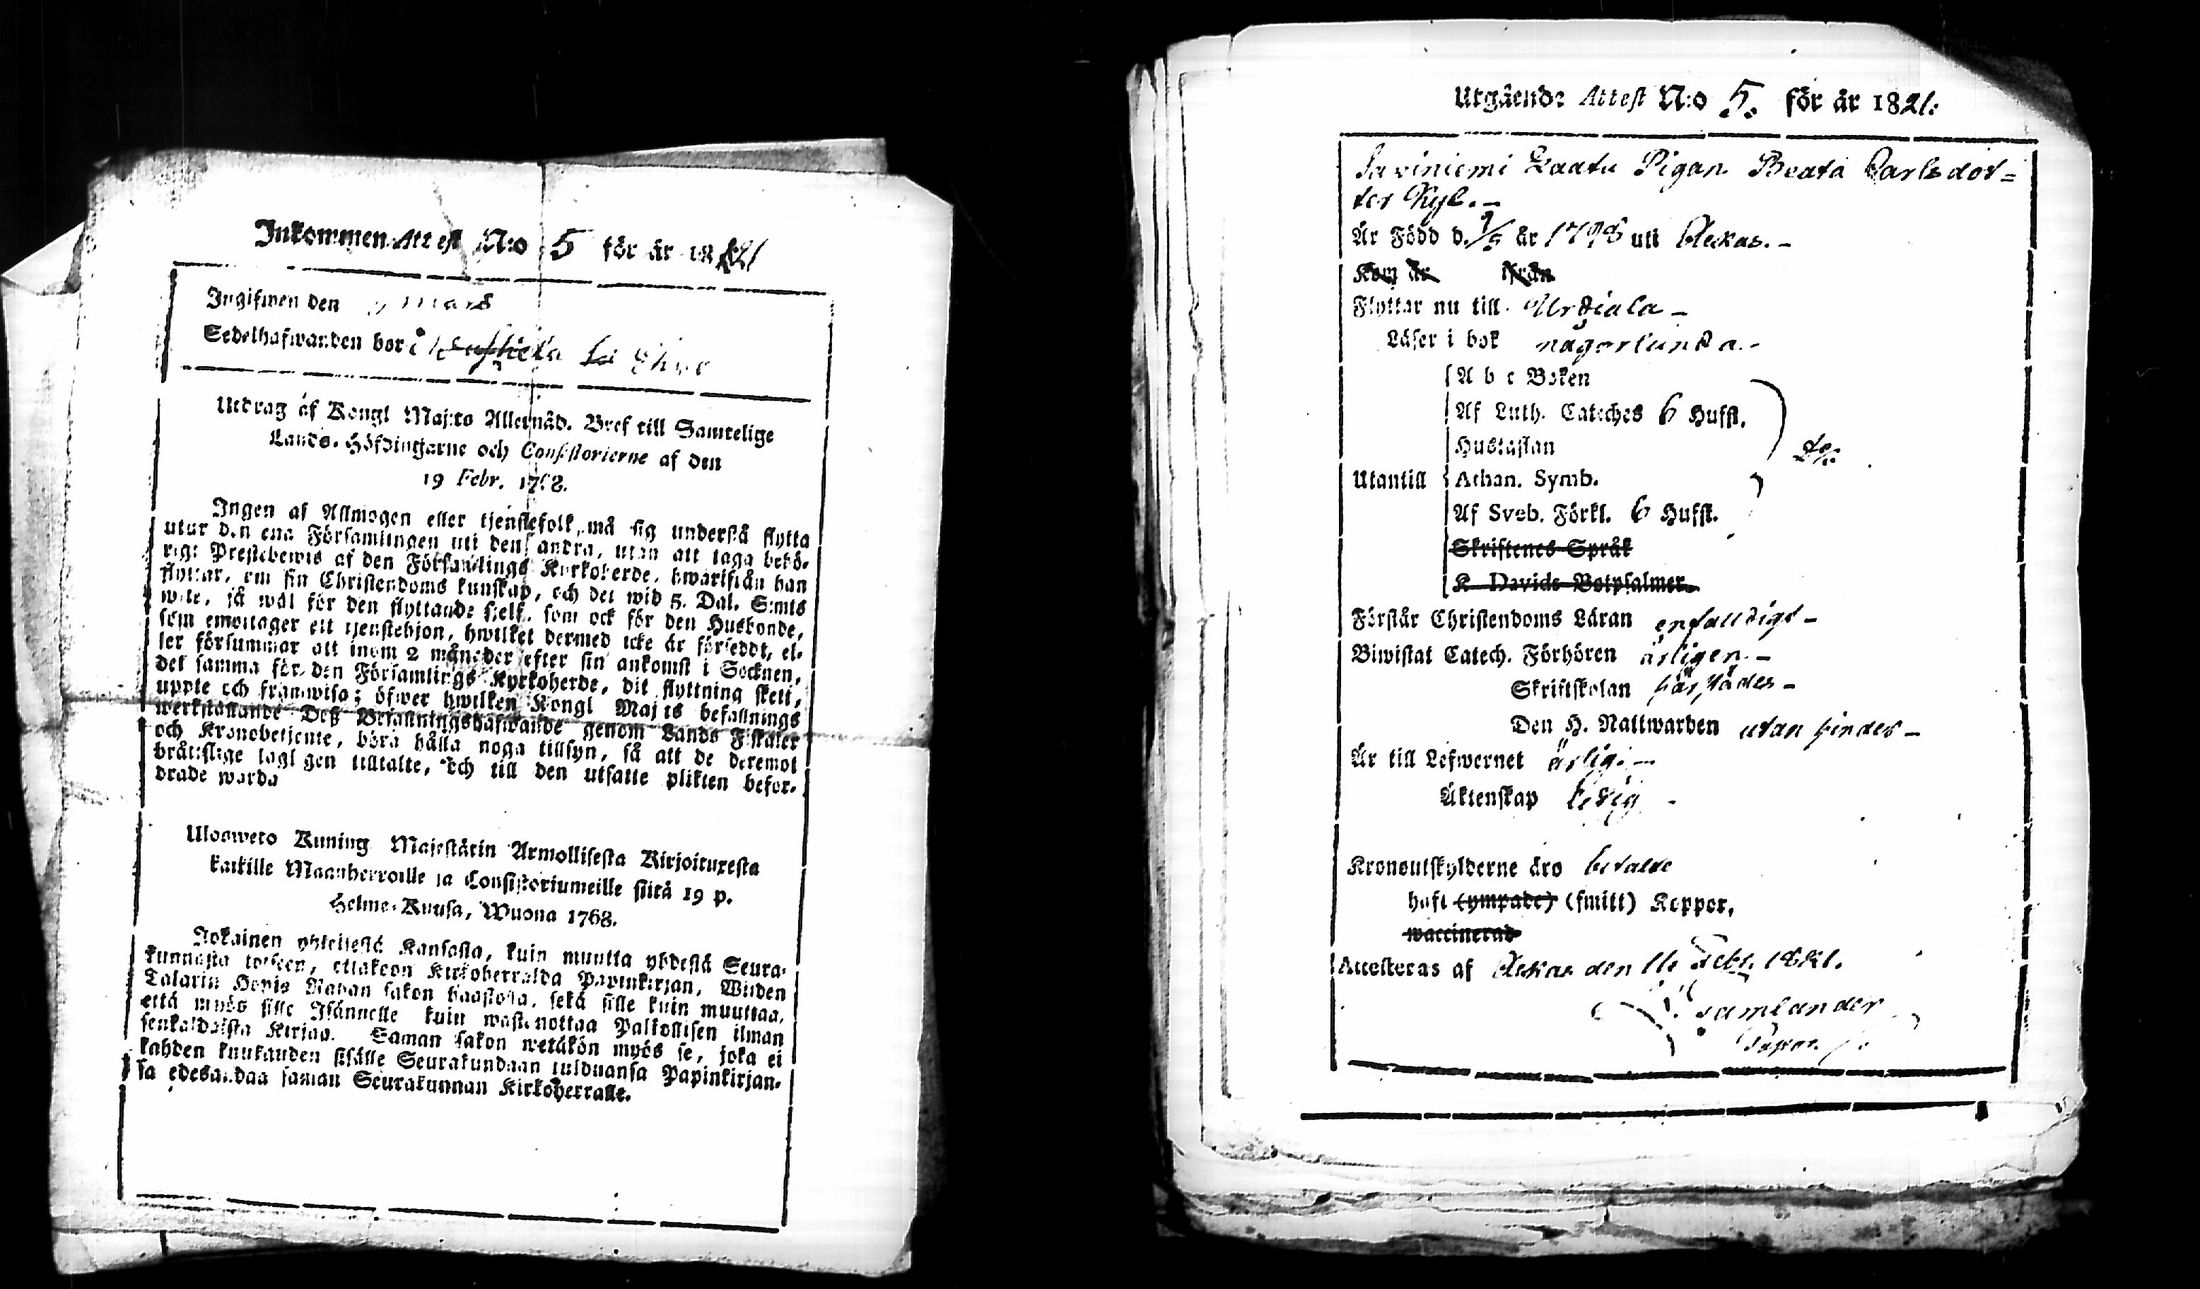 Inkommen Attest N:o 5 för år 1821
Ingifwen den mars
Sedelhafwanden bor i
Utdrag af Kongl Maj:ts Allernåd. Bref till Samtelige
Lands-Höfdingarne och Consistorierne af den
19 Febr. 1768.
Ingen af Allmogen eller tjenstefolk, må sig understå flytta
utur den ena Församlingen uti den andra, utan att taga behö-
rigt Prestebewis af den Församlings Kyrkoherde, hwarifrån han
flyttar, om sin Christendoms kunskap, och det wid 5. Dal. S:mts
wite, så wäl för den flyttande sjelf, som ock för den Husbonde,
som emottager ett tjenstehjon, hwilket dermed icke är försedt, el-
ler försummar att inom 2 månader efter sin ankomst i Socknen,
det samma för den Församlings Kyrkoherde, dit flyttning skett,
uppte och framwisa; öfwer hwilken Kongl Maj:ts befallnings
werkställande Deß Befallningshafwande genom Lands Fiskaler
och Kronobetjente, böra hålla noga tillsyn, så att de deremot
brättslige lagligen tilltalte, och till den utsatte plikten befor-
drade warda
Ulosweto Kuning Majestätin Armollisesta Kirjoituxesta
kaikille Maanherroille ja Consistoriumeille siitä 19 p.
Helme-Kuusa, Wuona 1768.
Jokainen yhteisestä Kansasta, kuin muutta yhdestä Seura-
kunnasta toiseen, ottakoon Kirkoherralda Papinkirjan, Wiiden
Talarin Hopia Rahan sakon haastolla, sekä sille kuin muuttaa,
että myös sille Isännelle kuin wastanottaa Palkollisen ilman
senkaldaista Kirjaa. Saman sakon wetäkön myös se, joka ei
kahden kuukauden sisälle Seurakundaan tulduansa Papinkirjan-
sa edesandaa saman Seurakunnan Kirkoherralle.
Utgående Attest N:o 5. för år 1821.
Saviniemi Laatu Pigan Beata Carlsdot=
ter Kyl. -
Är Född d. 1/9 år 1798 uti Ackas. -
Kom år från
Flyttar nu till Urdiala -
Läser i bok någorlunda. -
A b c Boken
Af Luth. Cateches 6 Hufst.
Hustaflan
Utantill Athan. Symb.
Af Sveb. Förkl. 6 Hufst.
Skriftenes Språk
K Davids Botpsalmer
Förstår Christendoms Läran enfalldigt -
Biwistat Catech. Förhören årligen -
Skriftskolan härstädes -
Den H. Nattwarden utan hinder -
Är till Lefwernet ärlig. -
Äktenskap ledig -
Kronoutskylderne äro betalte
haft (ympade) (smitt) Koppor,
waccinerad
Attesteras af Ackas den 16 Febr. 1821.